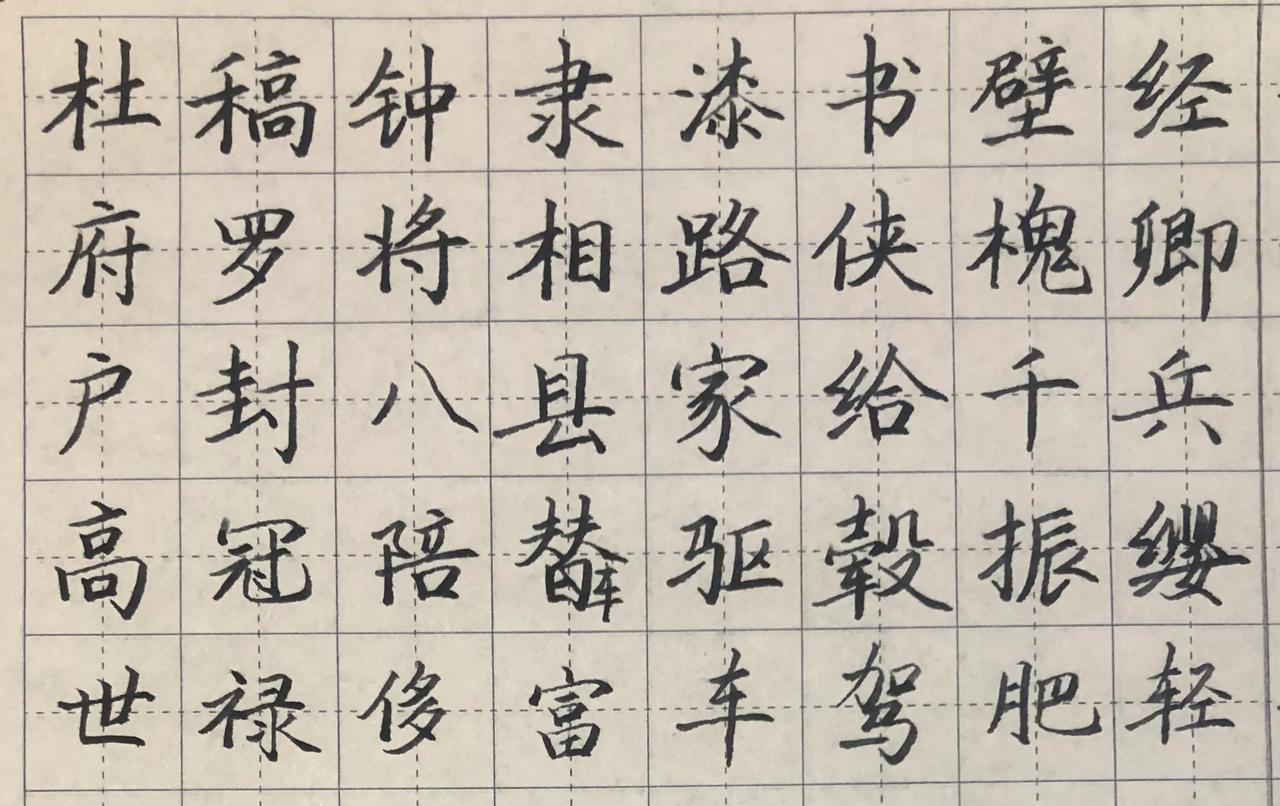 杜稿钟隶漆书壁经
府罗将相路侠槐卿
户封八县家给千兵
高冠陪辇驱毂振缨
世禄侈富车驾肥轻